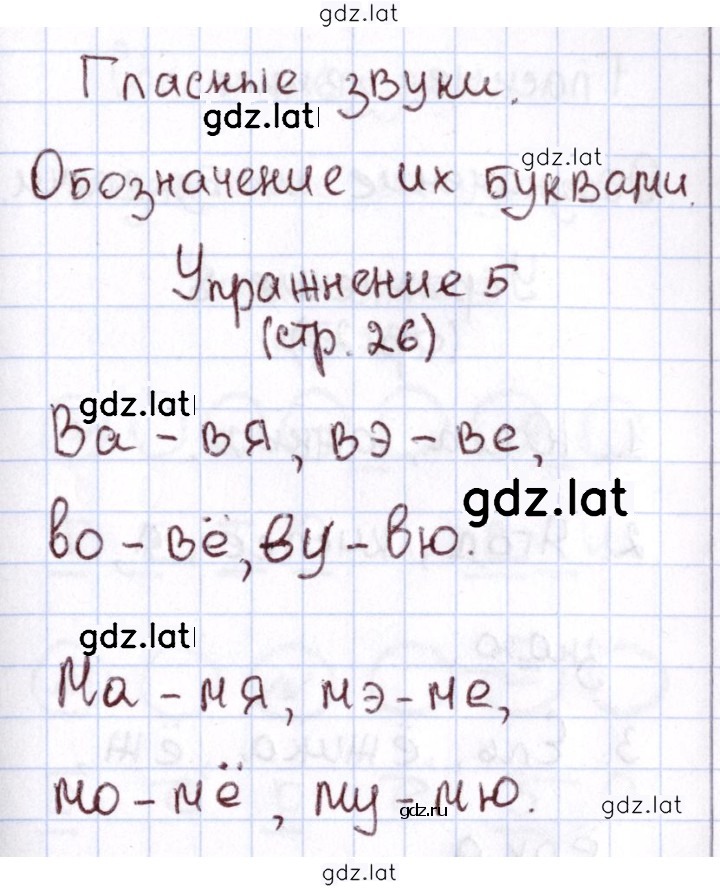 gdz.lat
Гласные звуки.
gdz.lat
gdz.lat
Обозначение их буквами.
Упражнение 5
(стр. 26)
gdz.lat
Ва - вя, вэ - ве,
gdz.lat
во - вё, ву - вю.
gdz.lat
Ма - мя, мэ - ме,
мо - мё, му - мю.
gdz.ru
gdz.lat
gdz.lat